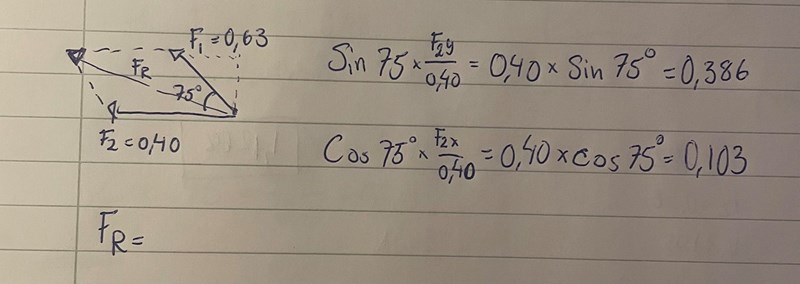 F₁ = 0,63
F_R
75°
F₂ = 0,40
Sin 75 × F₂y/0,40 = 0,40 × Sin 75° = 0,386
Cos 75° × F₂x/0,40 = 0,40 × cos 75° = 0,103
F_R =